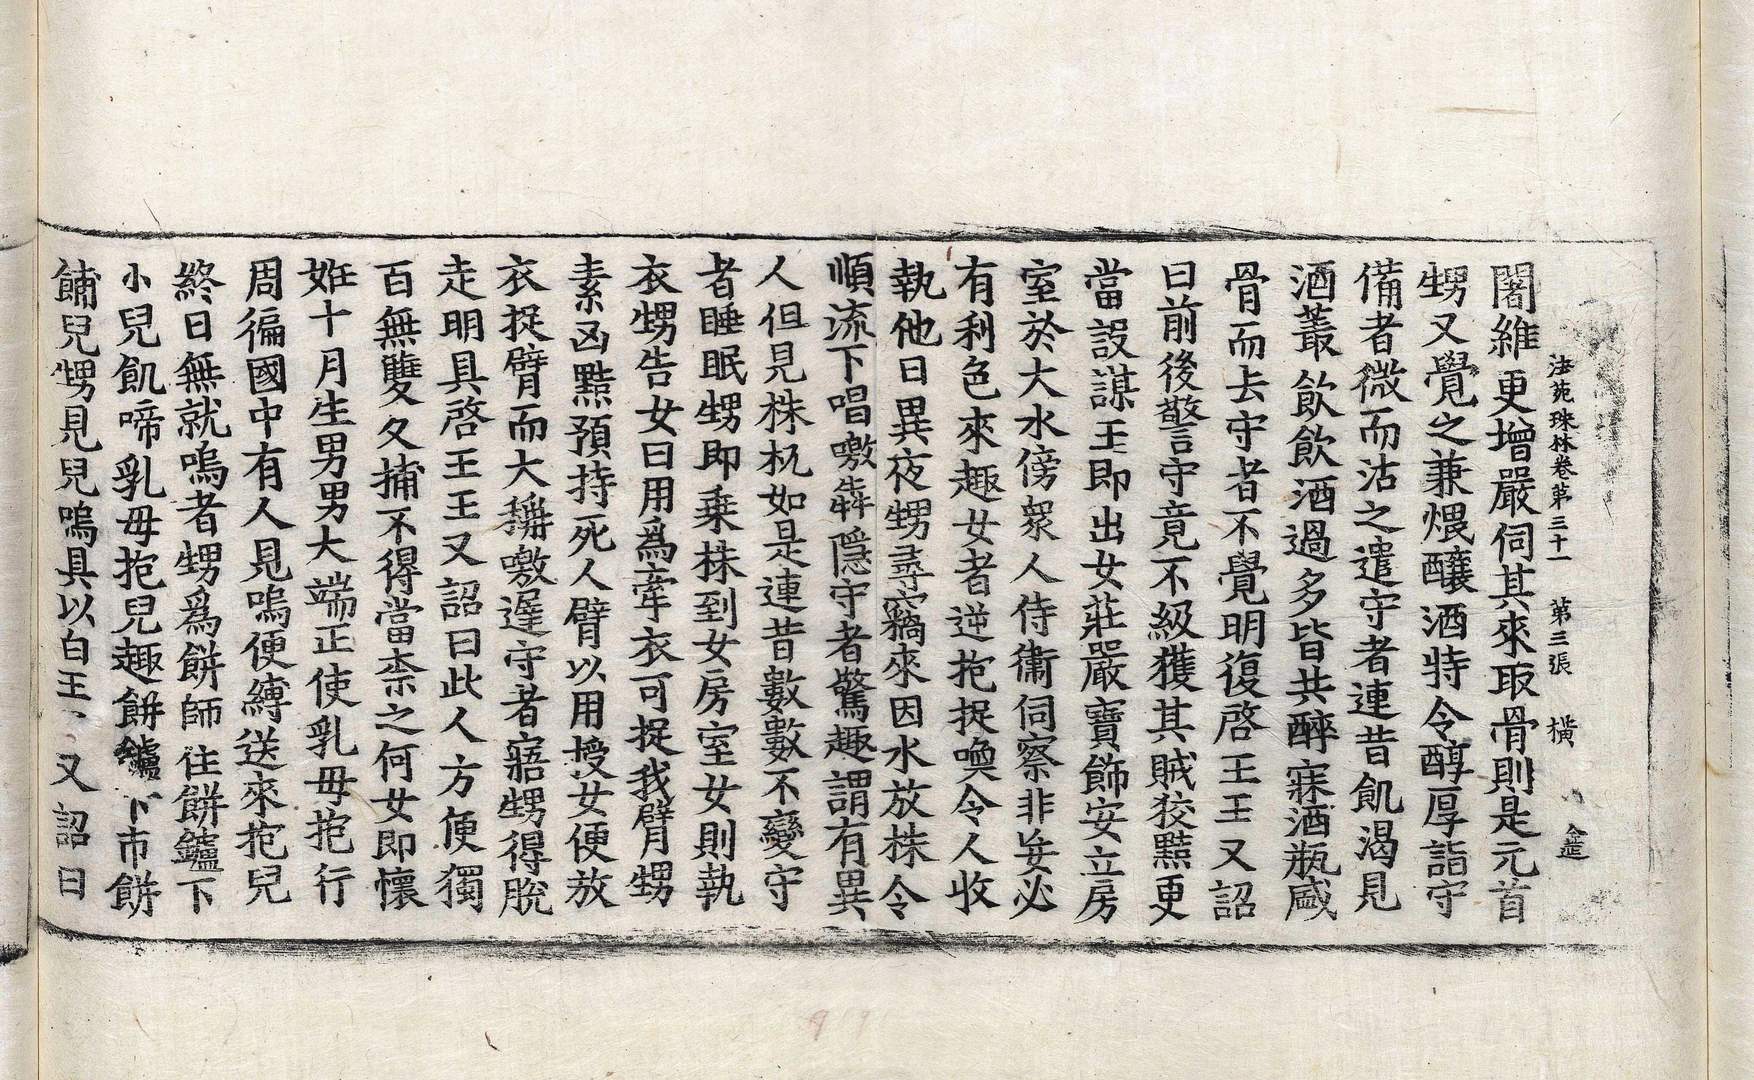 法苑珠林卷第三十一 第三張 橫
闍維更增嚴伺其來取骨則是元首
甥又覺之兼煨釀酒特令醇厚詣守
備者微而沽之遣守者連昔飢渴見
酒叢飲飲酒過多皆共醉寐酒瓶咸
骨而去守者不覺明復啓王王又詔
曰前後警守竟不級獲其賊狡黠更
當設謀王即出女莊嚴寶飾安立房
室於大水傍衆人侍衞伺察非妄必
有利色來趣女者逆抱捉喚令人收
執他日異夜甥尋竊來因水放株令
順流下唱噭犇隱守者驚趣謂有異
人但見株杌如是連昔數數不變守
者睡眠甥即乗株到女房室女則執
衣甥告女曰用爲牽衣可捉我臂甥
素凶黠預持死人臂以用授女便放
衣捉臂而大稱噭遅守者寤甥得脫
走明具啓王王又詔曰此人方便獨
百無雙久捕不得當柰之何女即懷
姙十月生男男大端正使乳母抱行
周徧國中有人見嗚便縛送來抱兒
終日無就嗚者甥爲餅師住餅鑪下
小兒飢啼乳母抱兒趣餅鑪下市餅
餔兒甥見兒嗚具以白王又詔曰